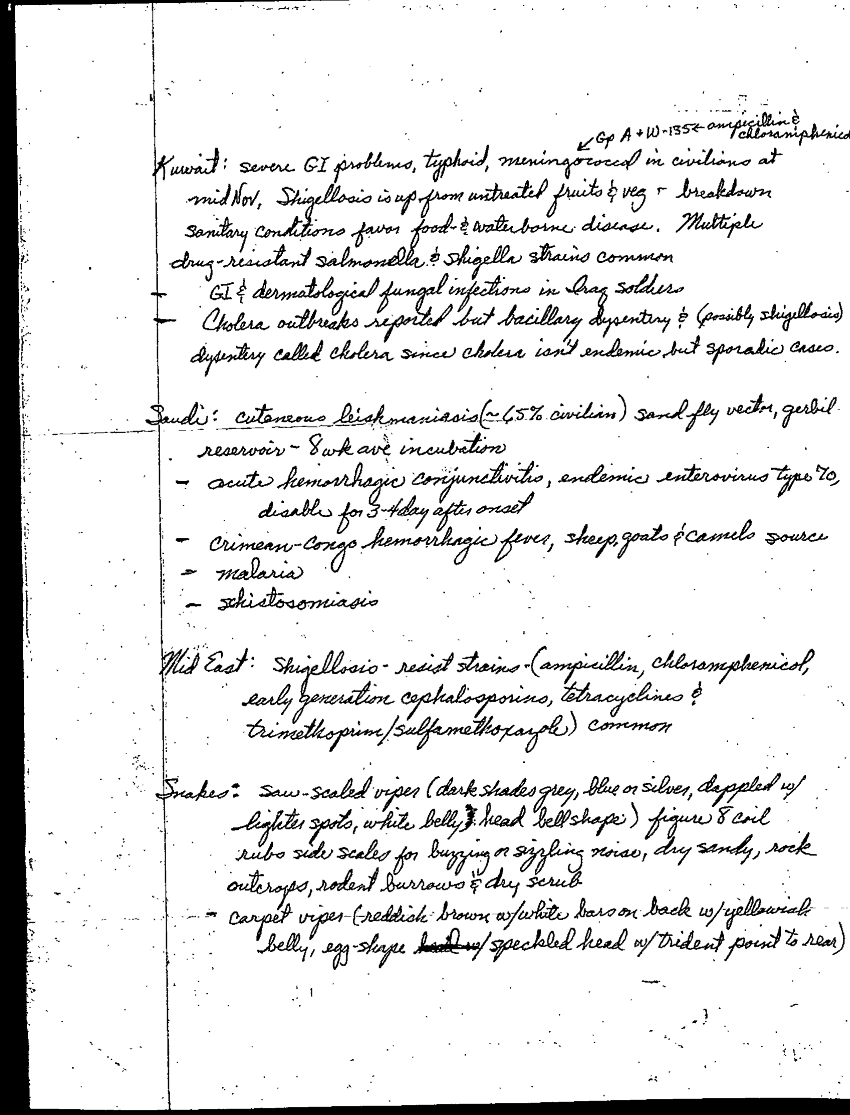 ↙ Gp A + W-135 ← ampicillin &
chloramphenicol
Kuwait: severe GI problems, typhoid, meningococcal in civilians at
mid Nov, Shigellosis is up from untreated fruits & veg + breakdown
sanitary conditions favor food- & waterborne disease. Multiple
drug-resistant salmonella & shigella strains common
— GI & dermatological fungal infections in Iraq soldiers
— Cholera outbreaks reported but bacillary dysentery & (possibly shigellosis)
dysentery called cholera since cholera isn't endemic but sporadic cases.
Saudi: cutaneous leishmaniasis (~65% civilian) sand fly vector, gerbil
reservoir - 8 wk ave incubation
- acute hemorrhagic conjunctivitis, endemic enterovirus type 70,
disable for 3-4 day after onset
- crimean-congo hemorrhagic fever, sheep, goats & camels source
- malaria
- schistosomiasis
Mid East: Shigellosis - resist strains - (ampicillin, chloramphenicol,
early generation cephalosporins, tetracyclines &
trimethoprim/sulfamethoxazole) common
Snakes: saw-scaled viper (dark shades grey, blue or silver, dappled w/
lighter spots, white belly, head bell shape) figure 8 coil
rubs side scales for buzzing or sizzling noise, dry sandy, rock
outcrops, rodent burrows & dry scrub
- carpet viper (reddish brown w/white bars on back w/yellowish
belly, egg-shape w/ speckled head w/ trident point to rear)